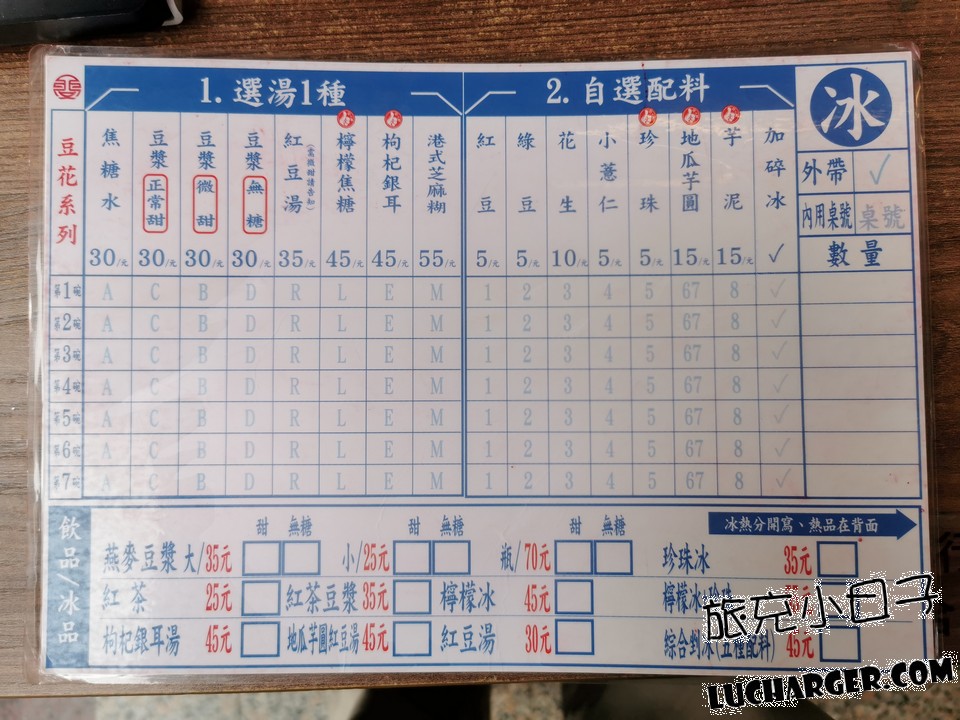 1. 選湯1種 2. 自選配料 冰
豆花系列
焦糖水 30/元
豆漿 正常甜 30/元
豆漿 微甜 30/元
豆漿 無糖 30/元
紅豆湯 35/元
檸檬焦糖 45/元
枸杞銀耳 45/元
港式芝麻糊 55/元
紅豆 5/元
綠豆 5/元
花生 10/元
小薏仁 5/元
珍珠 5/元
地瓜芋圓 15/元
芋泥 15/元
加碎冰 ✓
外帶 ✓
內用桌號 桌號
數量
第1碗 A C B D R L E M 1 2 3 4 5 67 8 ✓
第2碗 A C B D R L E M 1 2 3 4 5 67 8 ✓
第3碗 A C B D R L E M 1 2 3 4 5 67 8 ✓
第4碗 A C B D R L E M 1 2 3 4 5 67 8 ✓
第5碗 A C B D R L E M 1 2 3 4 5 67 8 ✓
第6碗 A C B D R L E M 1 2 3 4 5 67 8 ✓
第7碗 A C B D R L E M 1 2 3 4 5 67 8 ✓
飲品/冰品
甜 無糖 甜 無糖 甜 無糖 冰熱分開寫、熱品在背面
燕麥豆漿 大/35元 小/25元 瓶/70元 珍珠冰 35元
紅茶 25元 紅茶豆漿 35元 檸檬冰 45元 檸檬冰
枸杞銀耳湯 45元 地瓜芋圓紅豆湯 45元 紅豆湯 30元 綜合剉冰(五種配料) 45元
旅兒小日子
LUCHARGER.COM